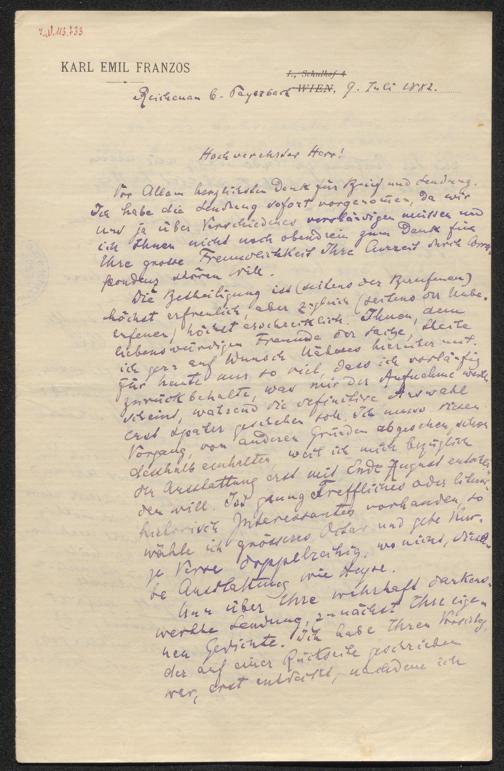 I.N. 115.733
KARL EMIL FRANZOS
I., Schulhof 4
WIEN, 9. Juli 1882.
Reichenau b. Payerbach
Hochverehrter Herr!
Vor Allem herzlichsten Dank für Brief und Sendung.
Ich habe die Sendung sofort vorgenomen, da wir
uns ja über Verschiedenes verständigen müssen und
ich Ihnen nicht noch obendrein zum Dank für
Ihre grosse Freundlichkeit Ihre Curzeit durch Corres
pondenz stören will.
Die Betheiligung ist (seitens der Berufenen)
höchst erfreulich, aber zugleich (seitens der Unbe-
rufenen) höchst erschrecklich. Ihnen, dem
liebenswürdigen Freunde der Sache, theile
ich gern auf Wunsch Näheres hierüber mit.
Für heute nur so viel, dass ich vorläufig
zurückbehalte, was mir der Aufnahme werth
scheint, während die definitive Auswahl
erst später geschehen soll. Ich muss diesen
Vorgang, von anderen Gründen abgesehen, schon
desshalb einhalten, weil ich mich bezüglich
der Ausstattung erst mit Ende August entschei-
den will. Ist genug Treffliches oder literar-
historisch Interessantes vorhanden, so
wähle ich grösseres Octav und gebe
je Verse doppelzeilig, wo nicht,
be Ausstattung wie
Nun über Ihre wahrhaft dankens-
werthe Sendung, zunächst Ihre eige-
nen Gedichte. Ich habe Ihren
der auf einer Rückseite geschrieben
war, erst entdeckt, nachdem ich